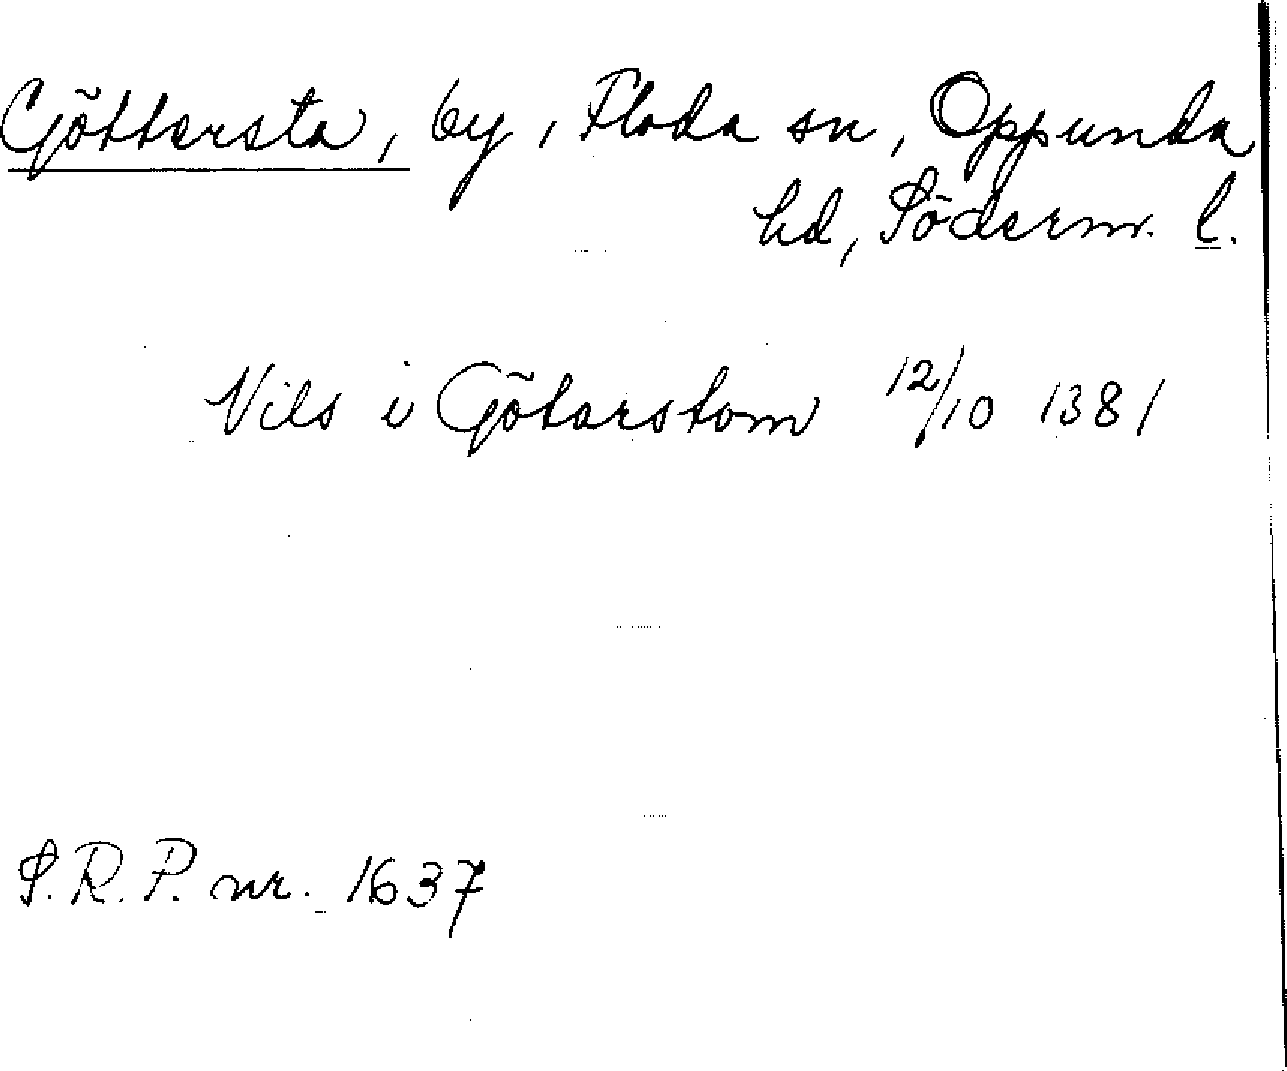 Göttersta, by, Floda sn, Oppunda
hd, Söderm. l.
Nils i Götarstom 12/10 1381
S.R.P. nr. 1637